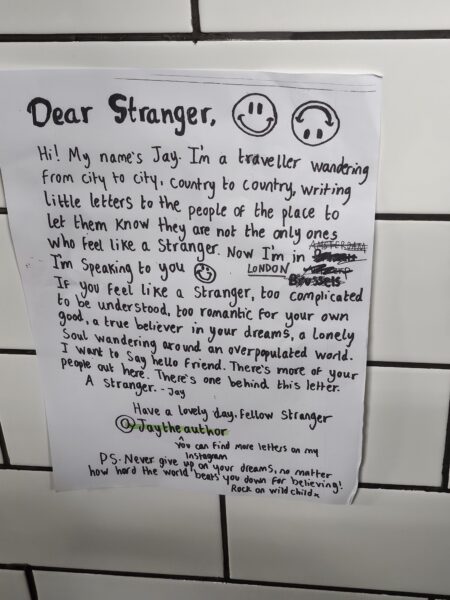 Dear Stranger,
Hi! My name's Jay. I'm a traveller wandering
from city to city, country to country, writing
little letters to the people of the place to
let them know they are not the only ones
who feel like a Stranger. Now I'm in AMSTERDAM
I'm Speaking to you LONDON
Brussels
If you feel like a Stranger, too complicated
to be understood, too romantic for your own
good, a true believer in your dreams, a lonely
Soul wandering around an overpopulated world.
I want to Say hello friend. There's more of your
people out here. There's one behind this letter.
A Stranger. - Jay
Have a lovely day, fellow Stranger
@Jaytheauthor
You can find more letters on my
Instagram
PS. Never give up on your dreams, no matter
how hard the world beats you down for believing!
Rock on wild child x